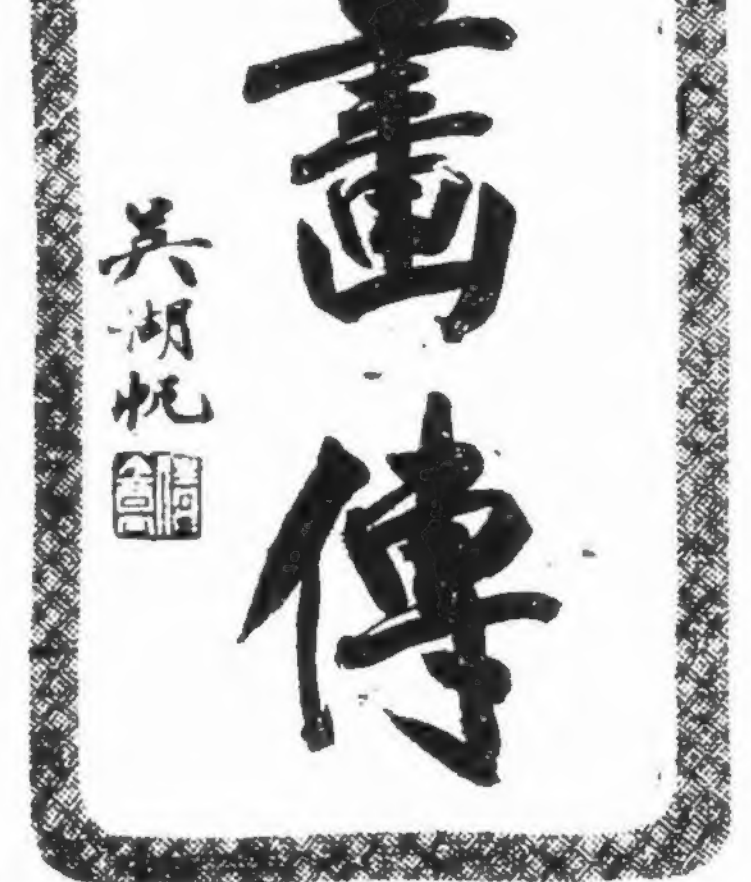 畫傳
吳湖帆